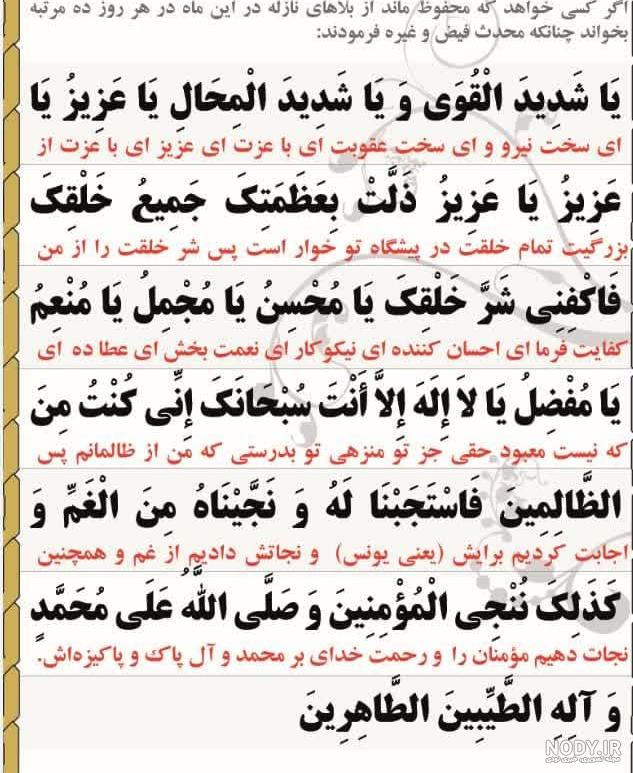 اگر کسی خواهد که محفوظ ماند از بلاهای نازله در این ماه در هر روز ده مرتبه
بخواند چنانکه محدث فیض و غیره فرمودند:
یَا شَدِیدَ الْقُوَی وَ یَا شَدِیدَ الْمِحَالِ یَا عَزِیزُ یَا
ای سخت نیرو و ای سخت عقوبت ای با عزت ای عزیز ای با عزت از
عَزِیزُ یَا عَزِیزُ ذَلَّتْ بِعَظَمَتِکَ جَمِیعُ خَلْقِکَ
بزرگیت تمام خلقت در پیشگاه تو خوار است پس شر خلقت را از من
فَاکْفِنِی شَرَّ خَلْقِکَ یَا مُحْسِنُ یَا مُجْمِلُ یَا مُنْعِمُ
کفایت فرما ای احسان کننده ای نیکوکار ای نعمت بخش ای عطا ده ای
یَا مُفْضِلُ یَا لاَ إِلَهَ إِلاَّ أَنْتَ سُبْحَانَکَ إِنِّی کُنْتُ مِنَ
که نیست معبود حقی جز تو منزهی تو بدرستی که من از ظالمانم پس
الظَّالِمِینَ فَاسْتَجَبْنَا لَهُ وَ نَجَّیْنَاهُ مِنَ الْغَمِّ وَ
اجابت کردیم برایش (یعنی یونس) و نجاتش دادیم از غم و همچنین
کَذَلِکَ نُنْجِی الْمُؤْمِنِینَ وَ صَلَّی اللَّهُ عَلَی مُحَمَّدٍ
نجات دهیم مؤمنان را و رحمت خدای بر محمد و آل پاک و پاکیزه‌اش.
وَ آلِهِ الطَّیِّبِینَ الطَّاهِرِینَ
NODY.IR
مجله تصویری خبری نودی